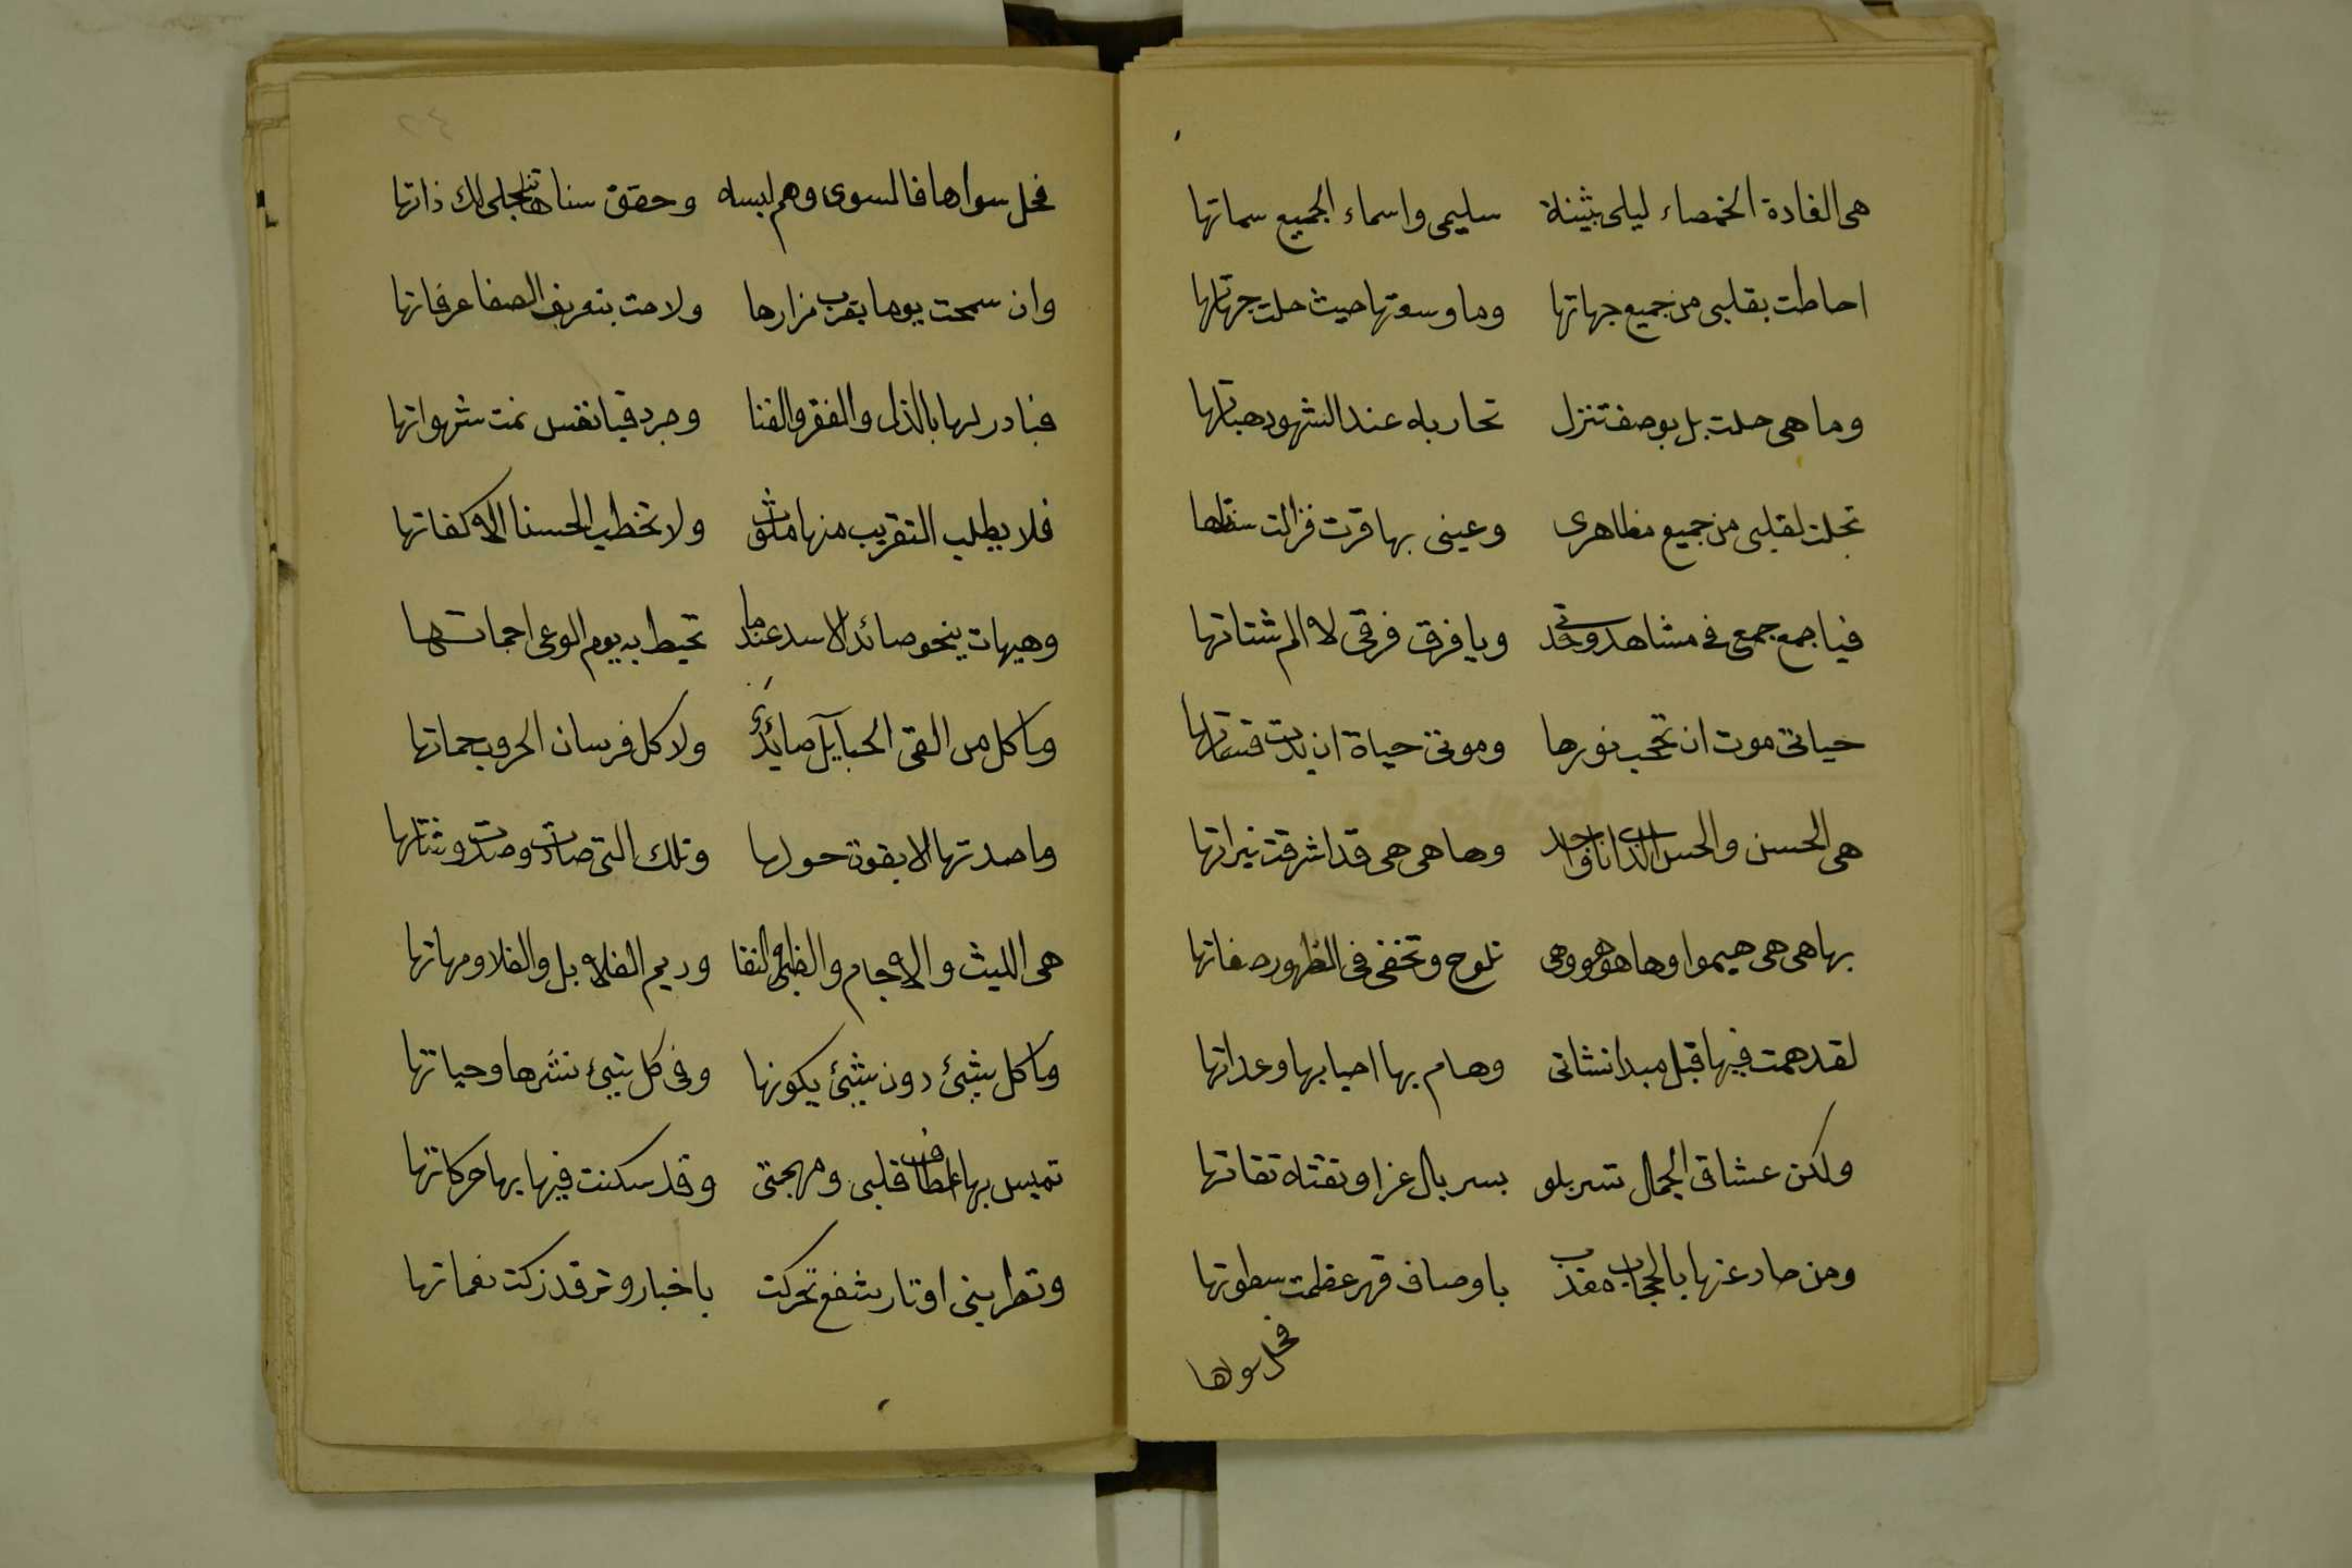 هى الغادة الخمصاء ليلى بثينة سليمى واسماء الجميع سماتها
احاطت بقلبى من جميع جهاتها وما وسعتها حيث حلت جهاتها
وما هى حلت بل بوصف تنزل تحاربه عند الشهود هباتها
تجلت لقلبى من جميع مظاهرى وعينى بها قرت فزالت
فيا جمع جمعى فى مشاهد وحدتى ويا فرق فرقى لا الم شتاتها
حياتى موت ان تحجب نورها وموتى حياة ان بدت قسماتها
هى الحسن والحسن الذات واحد وها هى هى قد اشرقت نيراتها
بها هى هى هيموا وها هو هو وهى تلوح وتخفى فى الظهور صفاتها
لقد همت فيها قبل مبدا نشاتى وهام بها احيابها وعداتها
ولكن عشاق الجمال تسربلو بسربال عز اوتقته تقاتها
ومن صار عنها بالحجاب معذب باوصاف قهر عظمت سطوتها
فخل سواها
٢٤
فخل سواها فالسوى وهم لبسه وحقق سناها تنجلى لك ذاتها
وان سمحت يوما بقرب مزارها ولاحت بتعريف الصفا عرفاتها
فبادر لها بالذل والفقر والفنا وجرد قيا نفس نمت شهواتها
فلا يطلب التقريب منها ملوث ولا تخطب الحسنا الا كفاتها
وهيهات ينحو صائد الاسد عندما تحيط به يوم الوعى اجماتها
وما كل من القى الحبايل صائد ولا كل فرسان الحروب حماتها
وما صدتها الا بقوة حولها وتلك التى صادت وصدت وشاتها
هى الليث والاجام والظبى والنقا وريم الفلا بل والفلا ومهاتها
وما كل شيئ دون شيئ يكونها وفى كل شيئ نشرها وحياتها
تميس بها اعطاف قلبى ومهجتى وقد سكنت فيها بها حركاتها
وتطربنى اوتار شفع تحركت باخبار وتر قد زكت نغماتها